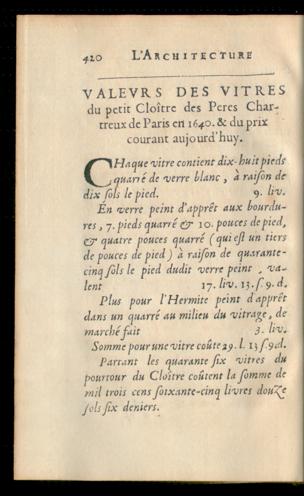 420 L'ARCHITECTURE
VALEVRS DES VITRES
du petit Cloître des Peres Char-
treux de Paris en 1640. & du prix
courant aujourd'huy.
CHaque vitre contient dix-huit pieds
quarré de verre blanc, à raison de
dix sols le pied. 9. liv.
En verre peint d'apprêt aux bourdu-
res, 7. pieds quarré & 10. pouces de pied,
& quatre pouces quarré (qui est un tiers
de pouces de pied) à raison de quarante-
cinq sols le pied dudit verre peint, va-
lent 17. liv. 13. s. 9. d.
Plus pour l'Hermite peint d'apprêt
dans un quarré au milieu du vitrage, de
marché fait 3. liv.
Somme pour une vitre coûte 29. l. 13 s. 9d.
Partant les quarante six vitres du
pourtour du Cloître coûtent la somme de
mil trois cens soixante-cinq livres douze
sols six deniers.